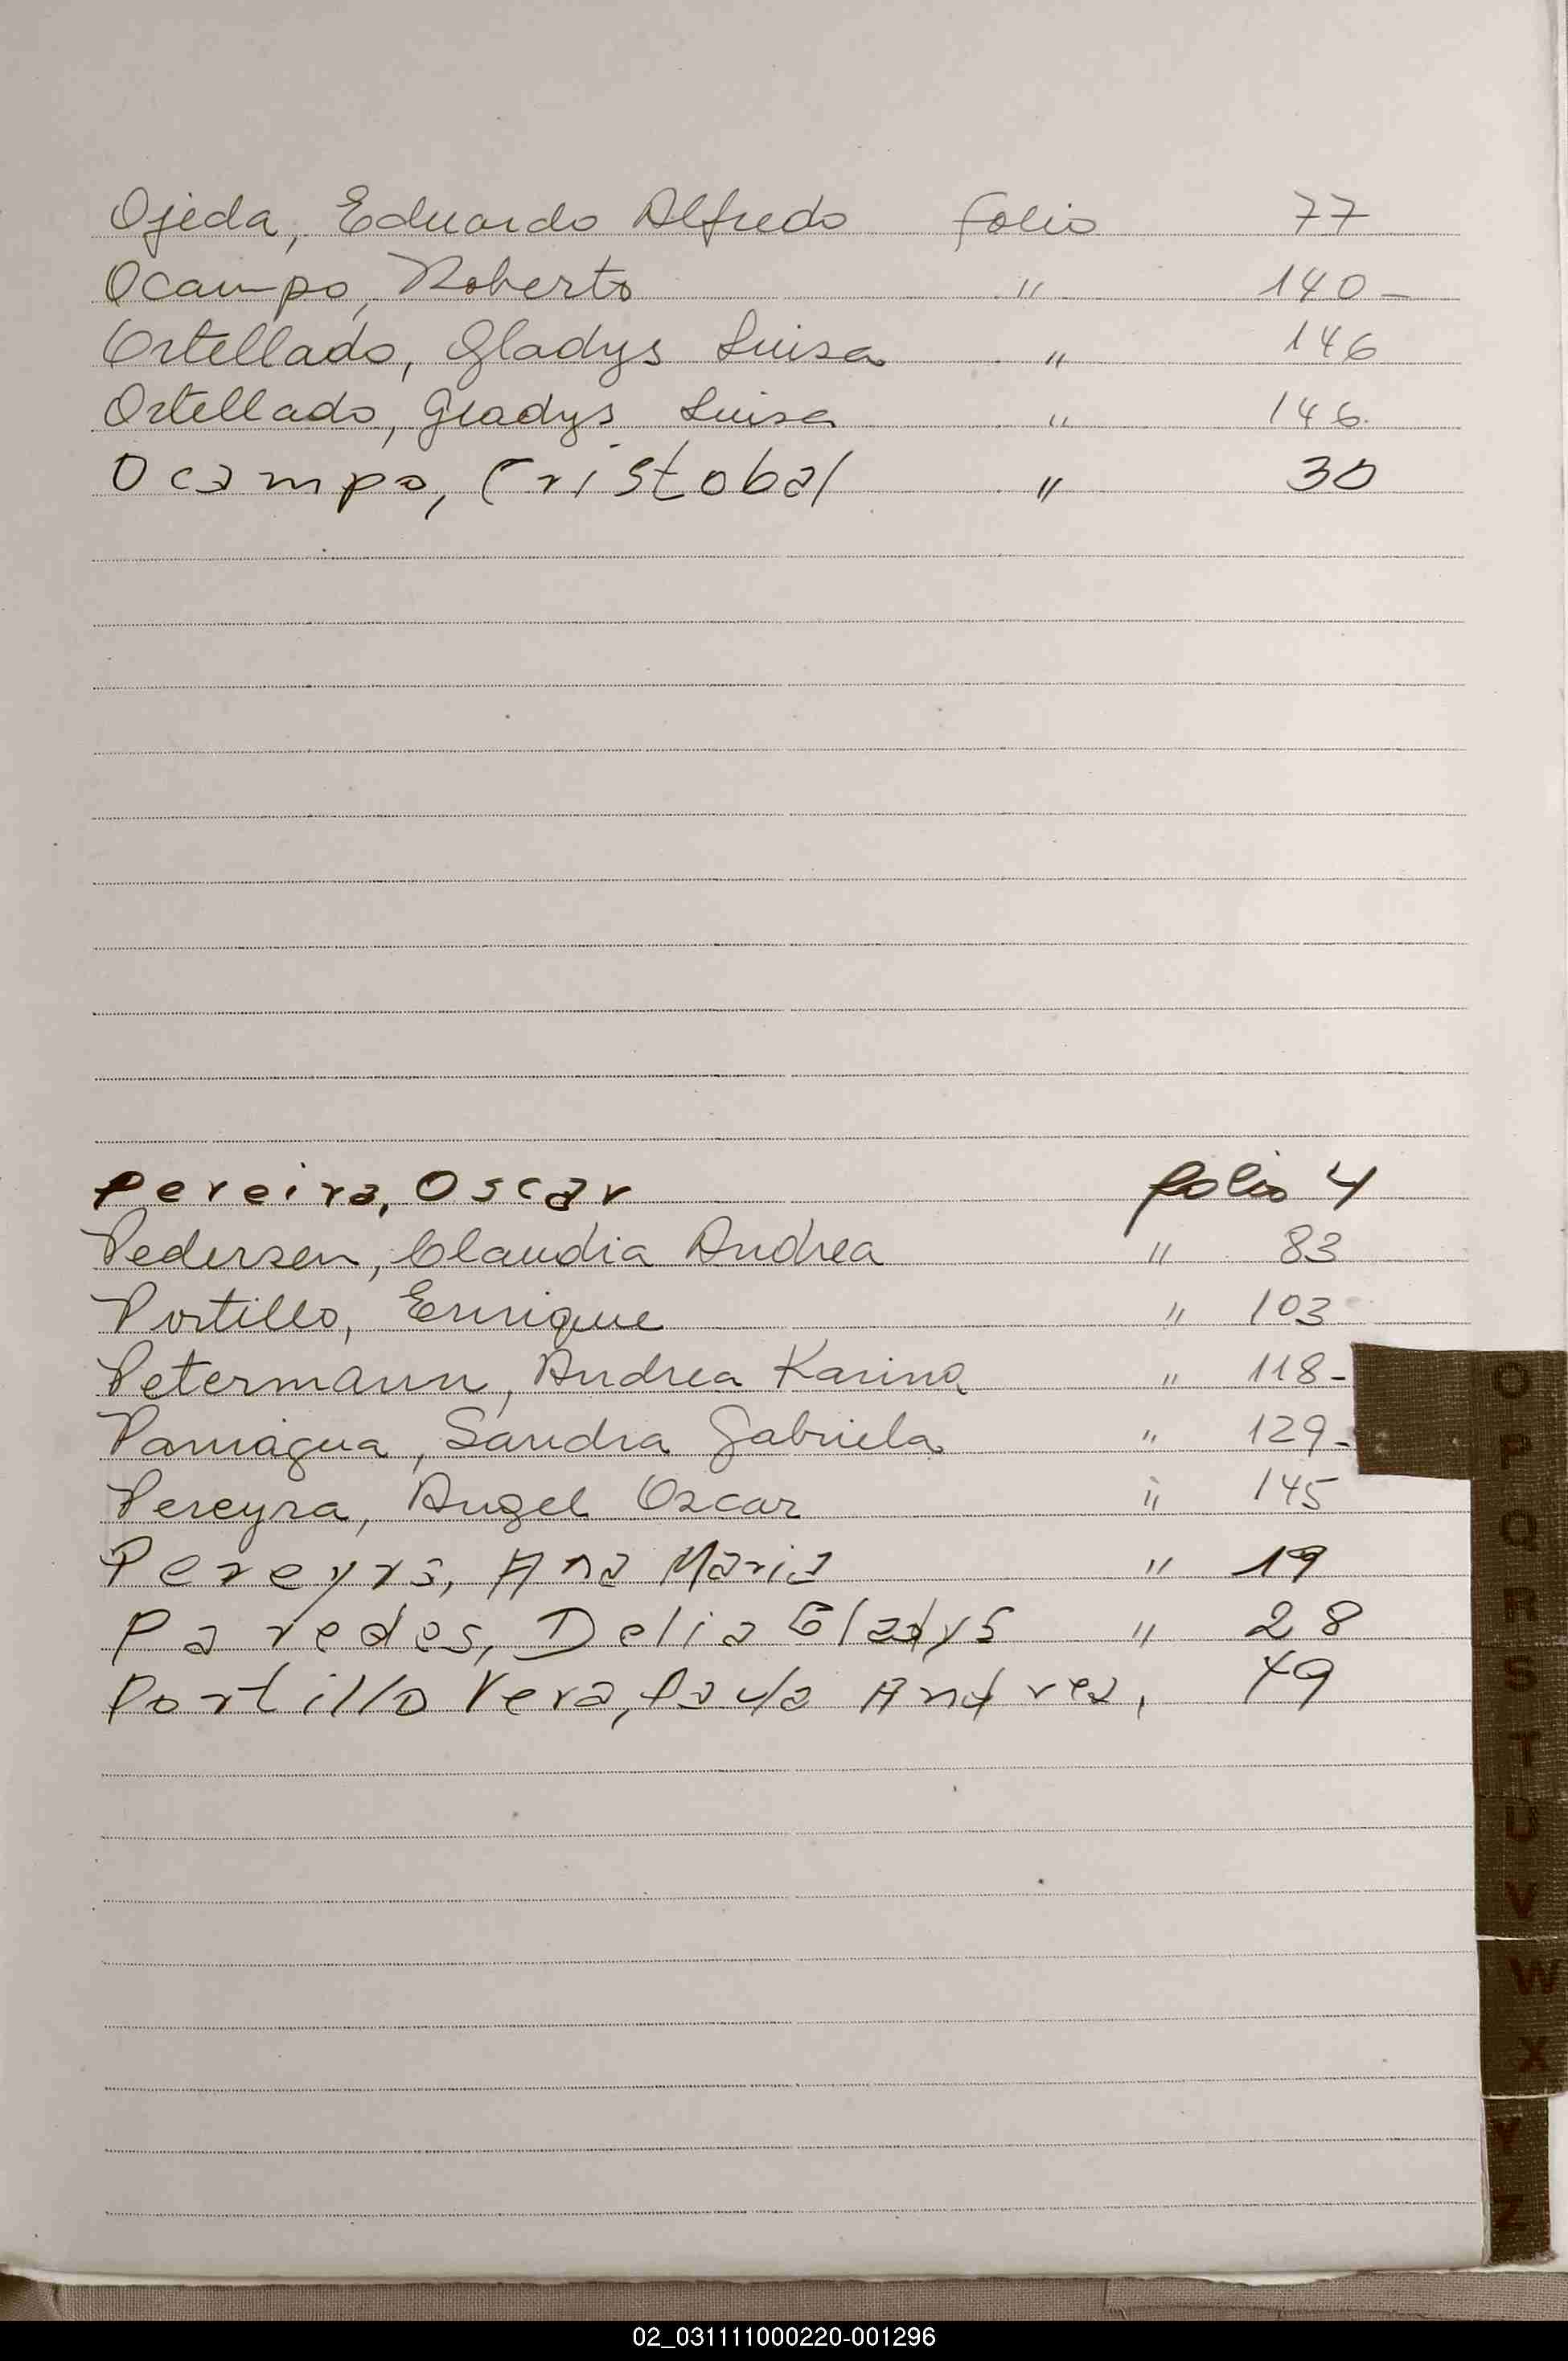 Ojeda, Eduardo Alfredo folio 77
Ocampo, Roberto " 140-
Ortellado, Gladys Luisa " 146
Ortellado, Gladys Luisa " 146.
Ocampo, Cristobal " 30
Pereira, Oscar folio 4
Pedersen, Claudia Andrea " 83
Portillo, Enrique " 103
Petermann, Andrea Karina " 118-
Paniagua, Sandra Gabriela " 129-
Pereyra, Angel Oscar " 145
Pereyra, Ana Maria " 19
Paredes, Delia Gladys " 28
Portillo Vera, Paula Andrea, 49
O
P
Q
R
S
T
U
V
W
X
Y
Z
02_031111000220-001296